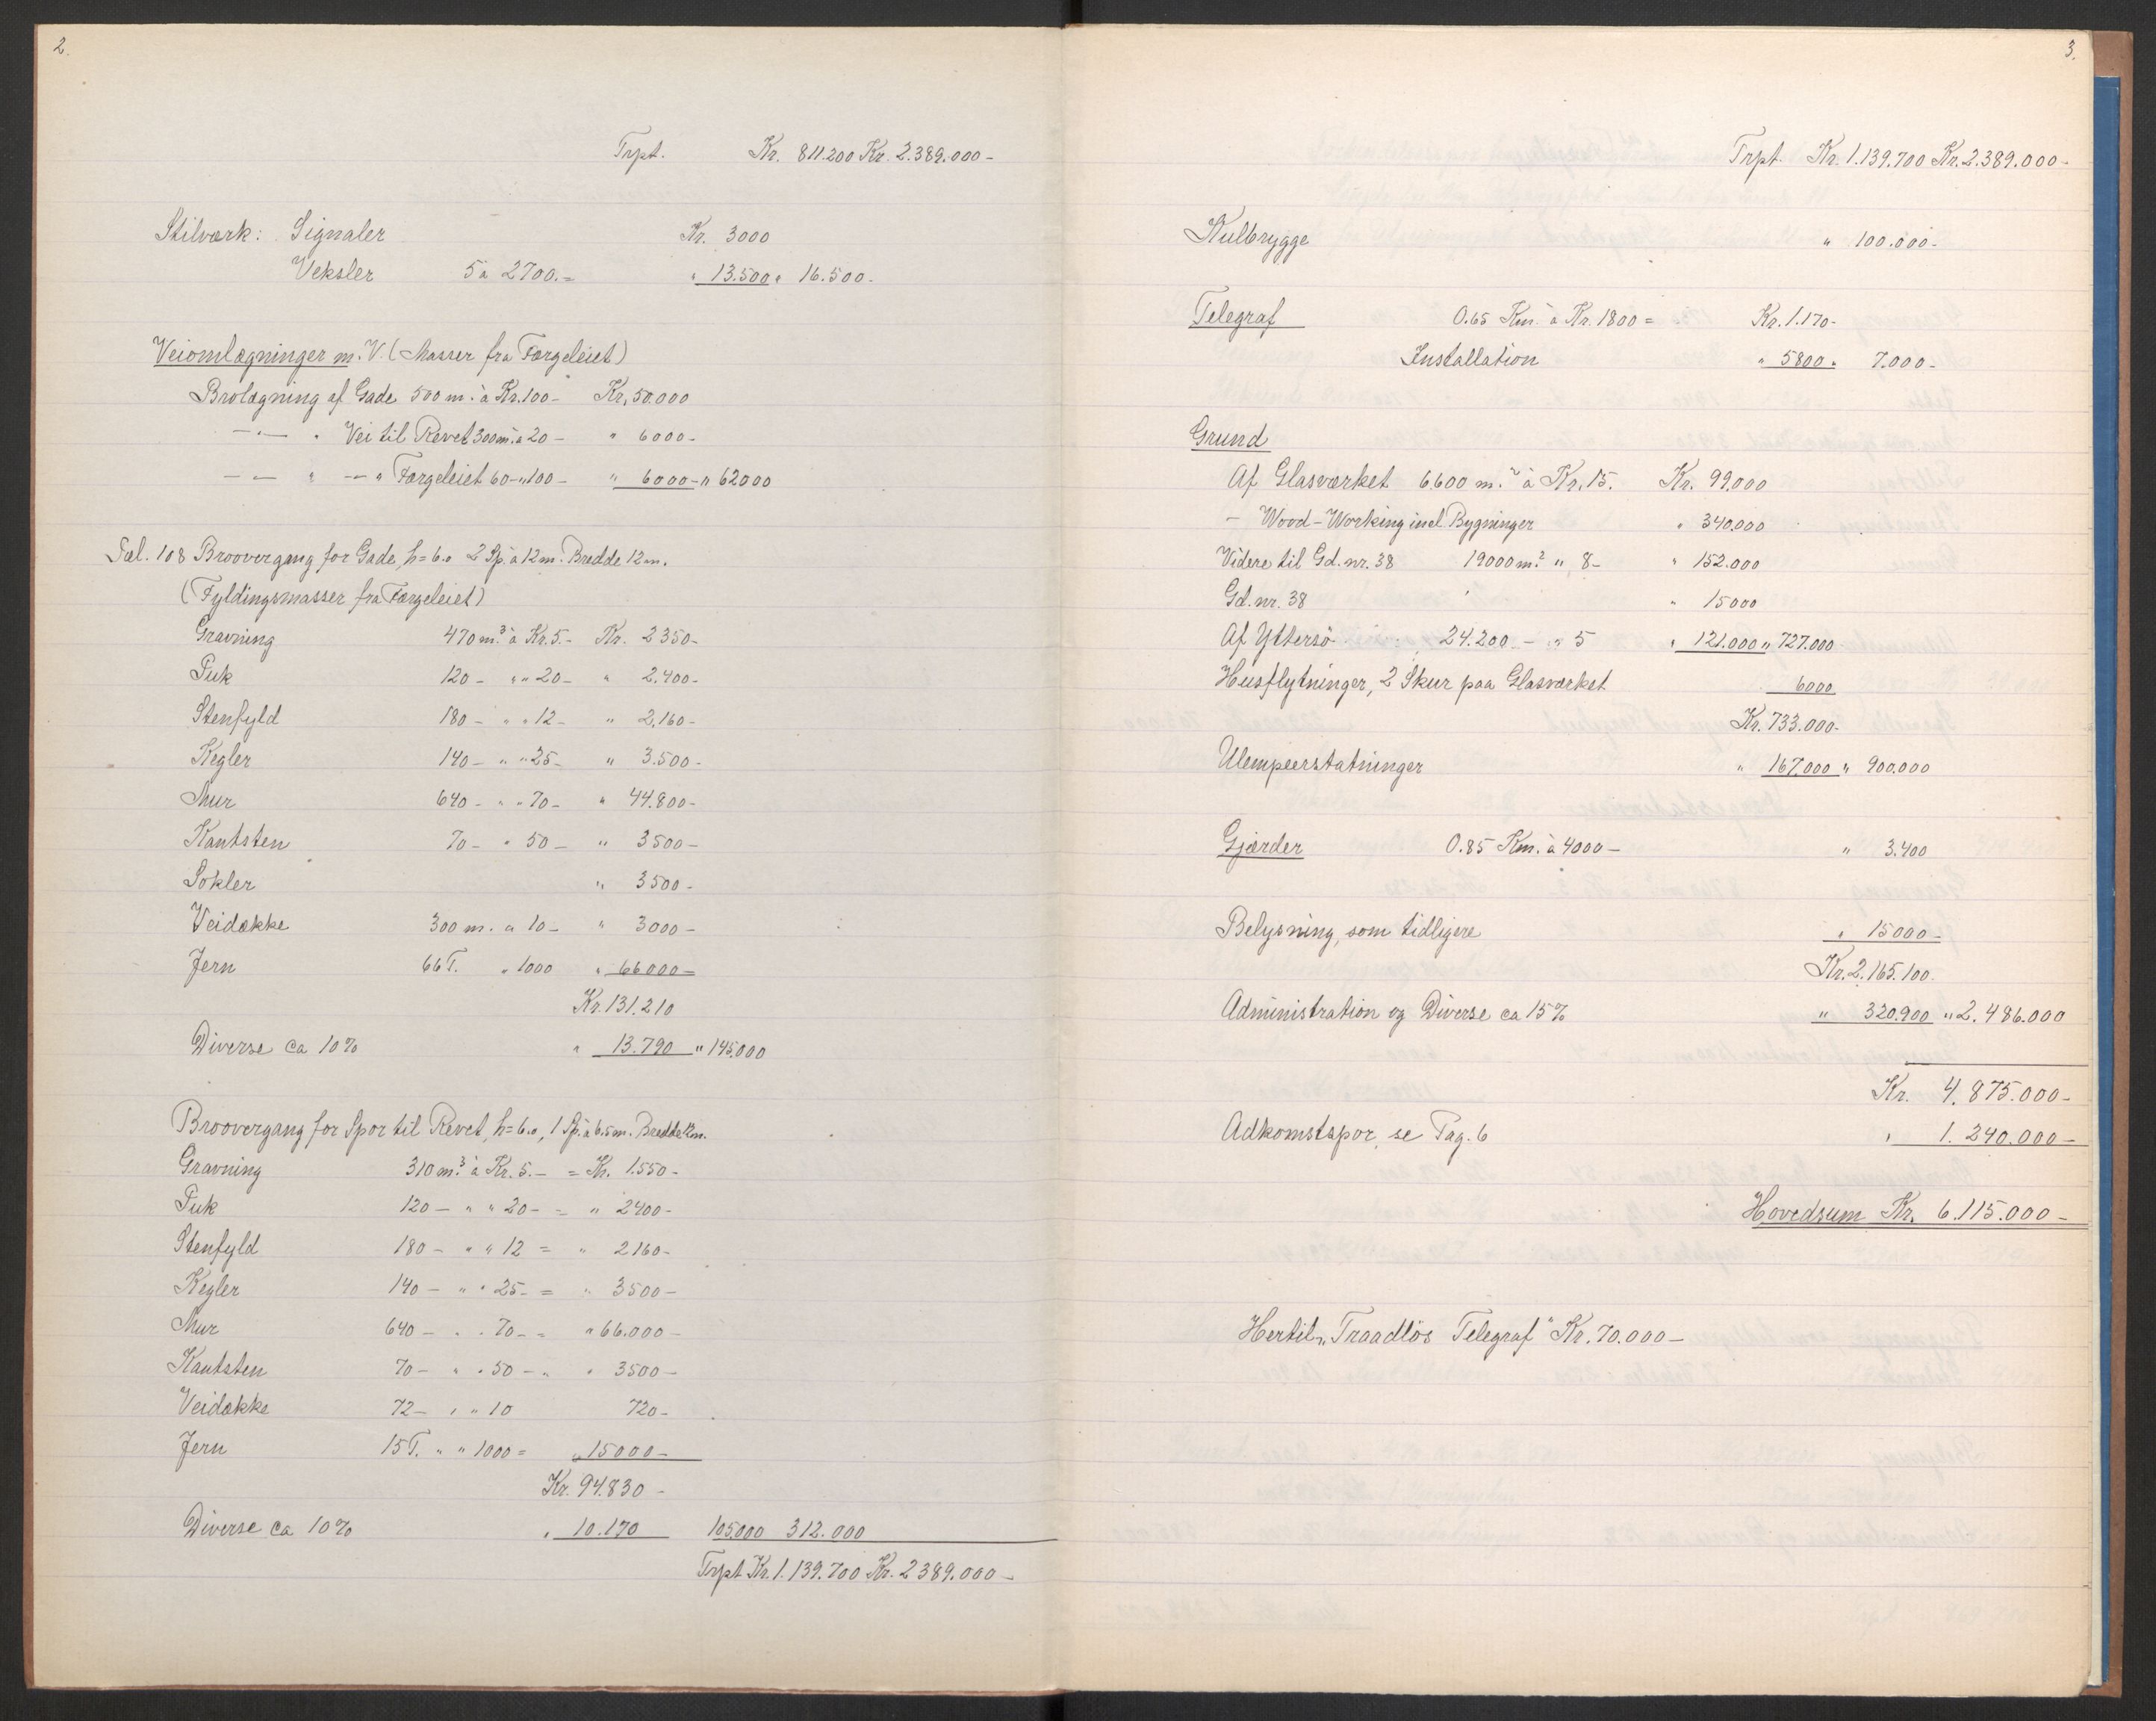 2.
Trpt. Kr. 811.200 Kr. 2.389.000-
Stilværk: Signaler Kr. 3000
Veksler 5 à 2700.= " 13.500 " 16.500-
Veiomlægninger m. V. (Masser fra Færgeleiet)
Brolægning af Gade 500 m. à Kr. 100- Kr. 50.000
-"- " Vei til Revet 300 m. à 20- " 6000-
-"- " -"- " Færgeleiet 60-"100- " 6000-" 62000
Pæl. 108 Broovergang for Gade, h=6.0 2 Sp. à 12 m. Bredde 12 m.
(Fyldingsmasser fra Færgeleiet)
Gravning 470 m.³ à Kr. 5.- Kr. 2350-
Puk 120- " " 20- " 2.400-
Stenfyld 180- " " 12- " 2.160-
Kegler 140- " " 25- " 3.500-
Mur 640- " " 70- " 44.800-
Kantsten 70- " 50- " 3500-
Sokler " 3500-
Veidække 300 m. a 10- " 3000-
Jern 66 T. " 1000 " 66000=
Kr. 131.210
Diverse ca 10% " 13.790 " 145.000
Broovergang for Spor til Revet, h=6.0, 1 Sp. à 6.5 m. Bredde 12 m.
Gravning 310 m.³ à Kr. 5.- = Kr. 1.550-
Puk 120- " " 20- = " 2400-
Stenfyld 180- " " 12 = " 2160-
Kegler 140- " " 25- = " 3500-
Mur 640- " " 70- = " 66.000-
Kantsten 70- " " 50- " " 3500-
Veidække 72- " " 10 720-
Jern 15 T. " " 1000= " 15000-
Kr. 94.830-
Diverse ca 10% " 10.170 105.000 312.000
Trpt Kr. 1.139.700 Kr. 2389.000-
3.
Trpt. Kr. 1.139.700 Kr. 2.389.000-
Kulbrygge " 100.000-
Telegraf 0.65 Km. à Kr. 1800= Kr. 1.170-
Installation " 5800 " 7.000-
Grund
Af Glasværket 6.600 m.² à Kr. 15. Kr. 99.000
- Wood-Working incl. Bygninger " 340.000
Videre til Gd. nr. 38 19000 m.² " 8- " 152.000
Gd. nr. 38 " 15000
Af Yttersö 24.200- " 5 " 121.000 " 727.000-
Husflytninger, 2 Skur paa Glasværket 6000
Kr. 733.000-
Ulempeerstatninger " 167.000 " 900.000
Gjærder 0.85 Km. à 4000- " 3.400
Belysning, som tidligere " 15000-
Kr. 2.165.100.
Administration og Diverse ca 15% " 320.900 " 2.486.000
Kr. 4.875.000-
Adkomstspor, se Pag. 6 " 1.240.000-
Hovedsum Kr. 6.115.000-
Hertil „Traadlös Telegraf" Kr. 70.000-